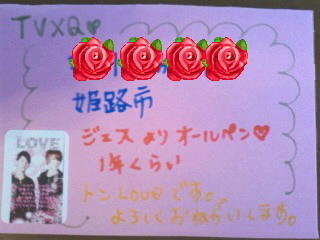 TVXQ♡
姫路市
ジェス より オールペン♡
1年くらい
LOVE
トン Loveです。
よろしくおねがいします。